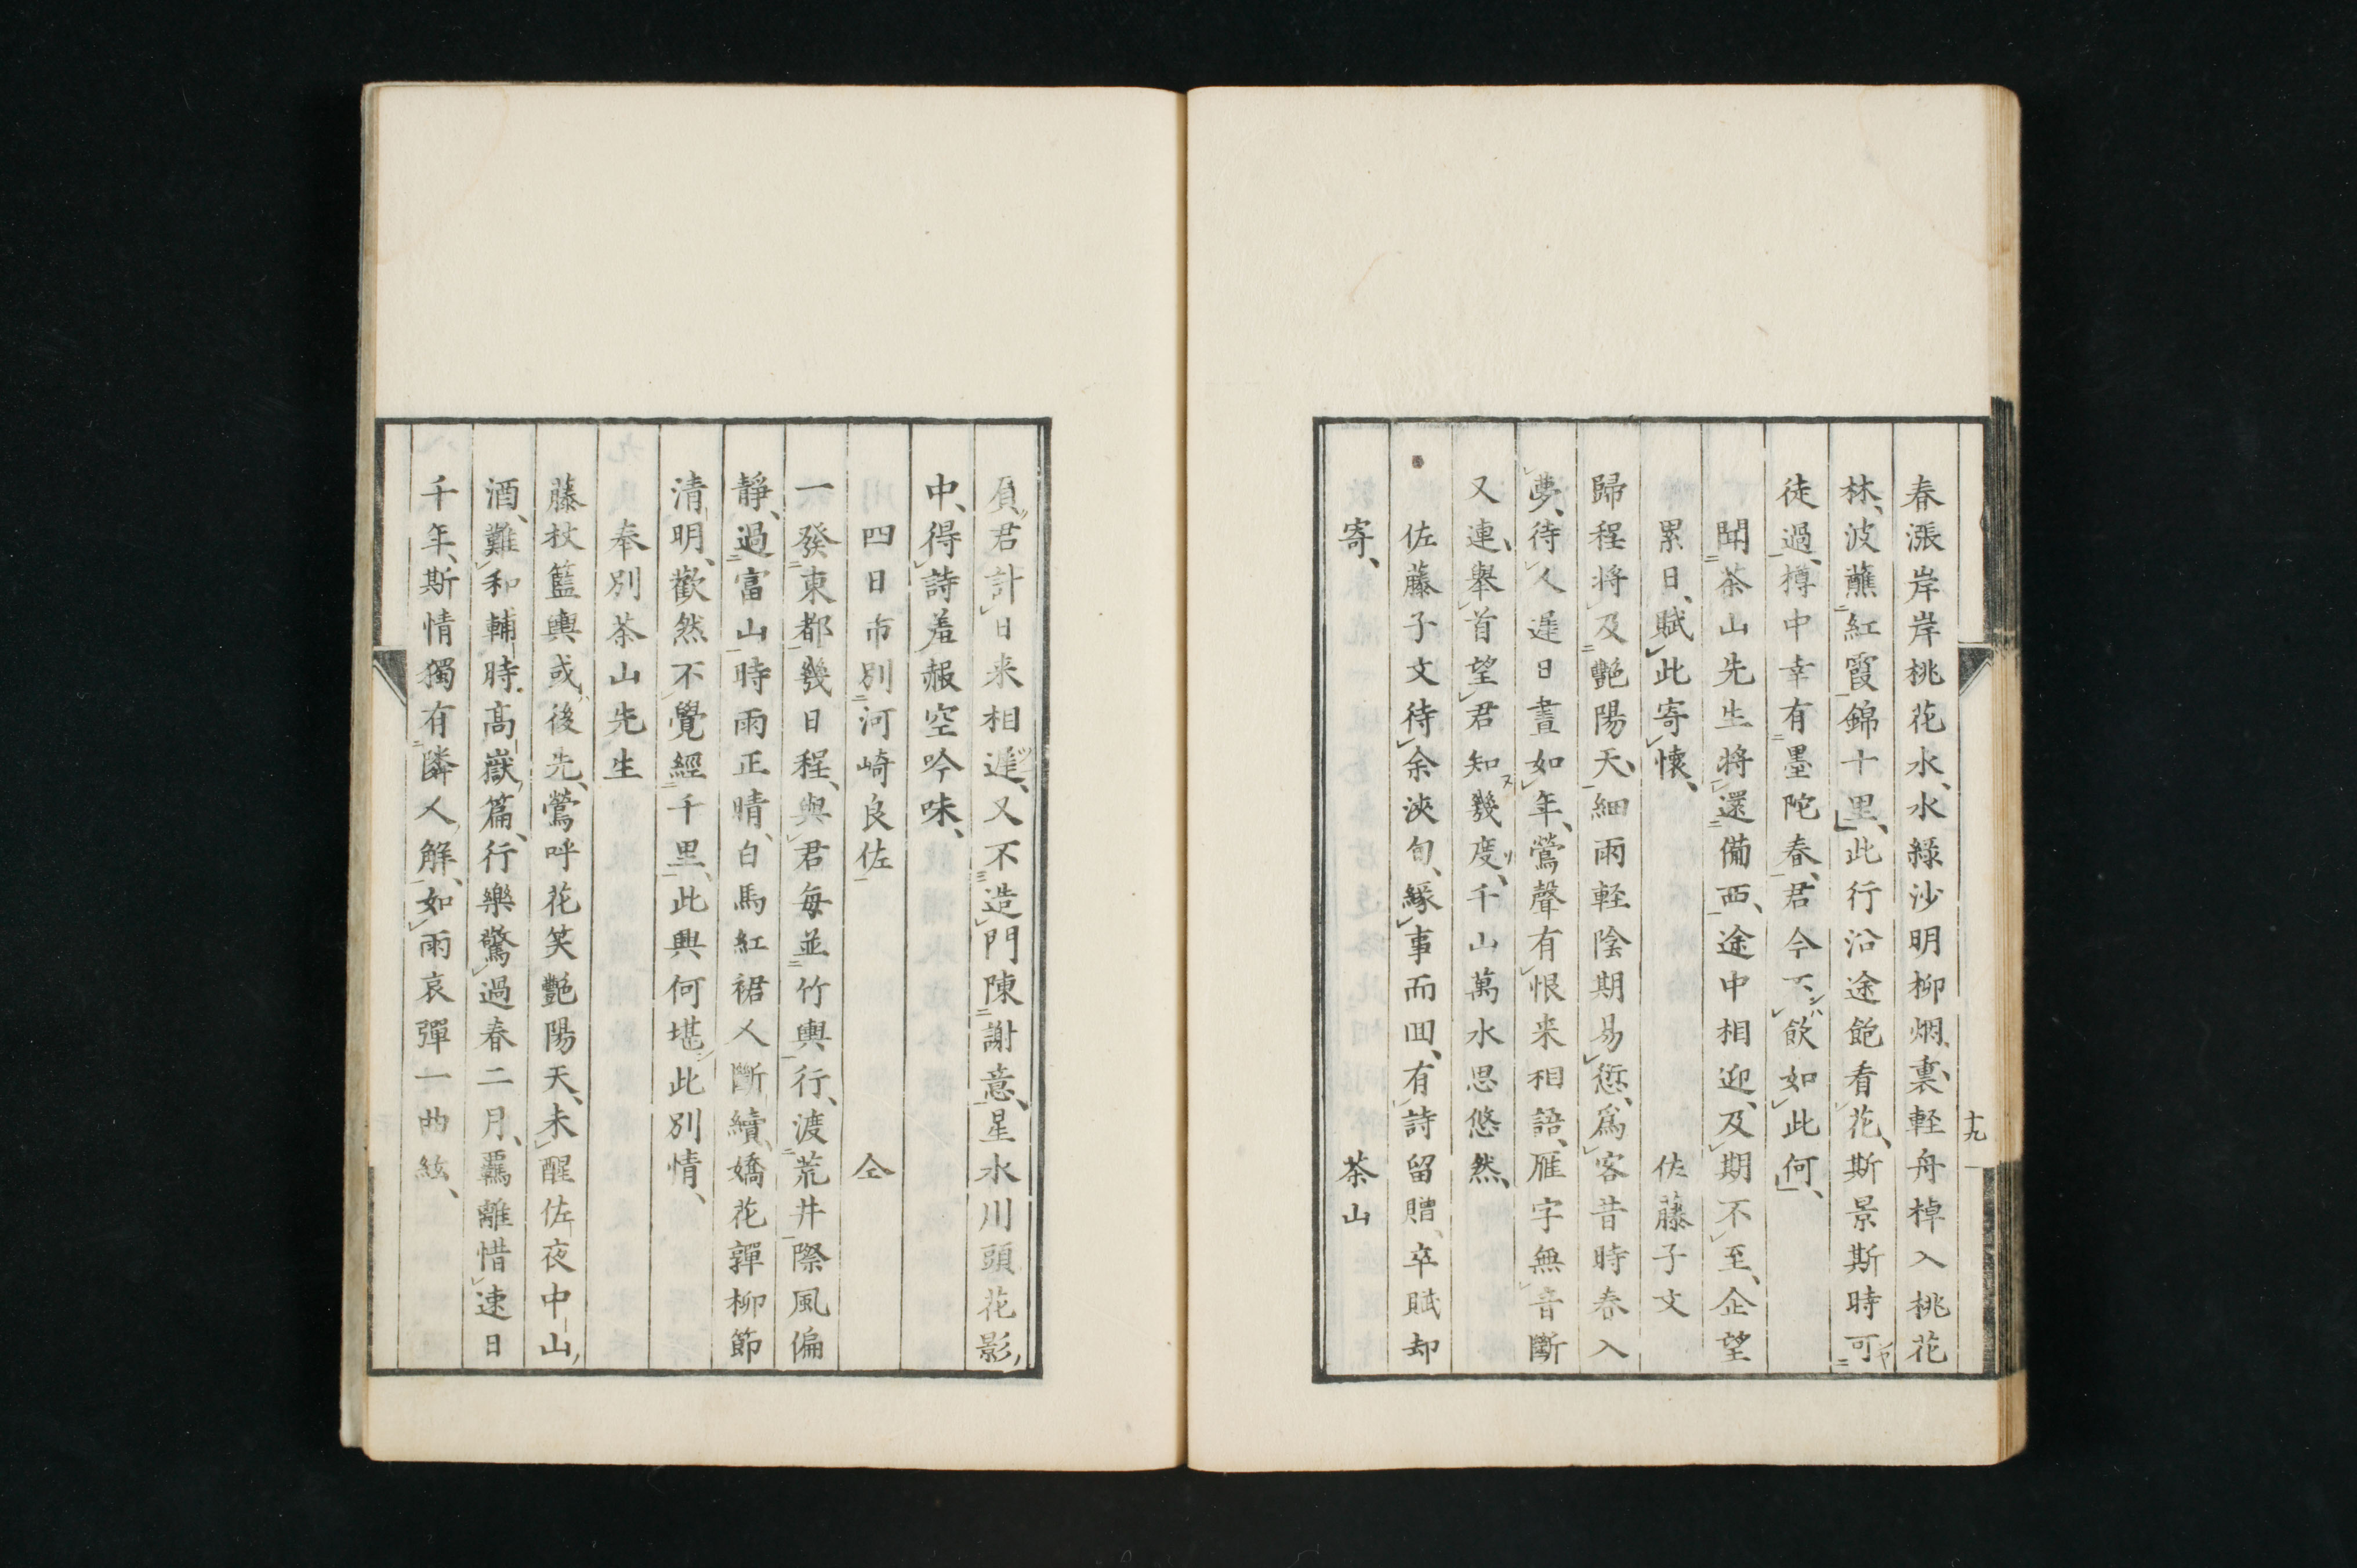 春漲岸岸岸桃花水、水緑沙明柳烟裏、軽舟棹入桃花
林、波蘸紅霞錦十里、此行沿途飽看花、斯景斯時可
徒過、樽中幸有墨陀春、君今不飲如此何、
聞茶山先生将還備西、途中相迎、及期不至、企望
累日、賦此寄懐、　佐藤子文
歸程将及艶陽天、細雨軽陰期易愆、爲客昔時春入
夢、待人遅日晝如年、鶯聲有恨来相語、雁字無音斷
又連、舉首望君知幾度、千山萬水思悠然、
佐藤子文待余浹旬、縁事而囬、有詩留贈、卒賦却
寄、　茶山
十九
負君計日来相遅、又不造門陳謝意、星水川頭花影
中、得詩羞赧空吟味、
四日市別河崎良佐　仝
一發東都幾日程、與君毎並竹輿行、渡荒井際風偏
靜、過富山時雨正晴、白馬紅裙人斷續、嬌花嚲柳節
清明、歡然不覺經千里、此興何堪此別情、
奉別茶山先生
藤杖籃輿或後先、鶯呼花笑艶陽天、未醒佐夜中山
酒、難和輔時高嶽篇、行樂驚過春二月、羈離惜速日
千年、斯情獨有隣人解、如雨哀彈一曲絃、